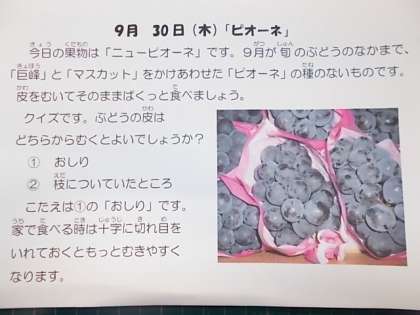 9月 30日（木）「ピオーネ」
今日の果物は「ニューピオーネ」です。9月が旬のぶどうのなかまで、
「巨峰」と「マスカット」をかけあわせた「ピオーネ」の種のないものです。
皮をむいてそのままぱくっと食べましょう。
クイズです。ぶどうの皮は
どちらからむくとよいでしょうか？
① おしり
② 枝についていたところ
こたえは①の「おしり」です。
家で食べる時は十字に切れ目を
いれておくともっとむきやすく
なります。